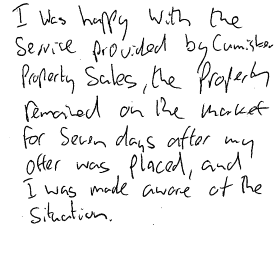 I was happy with the
Service provided by Cumisker
Property Sales, the Property
remained on the market
for Seven days after my
offer was placed, and
I was made aware of the
Situation.